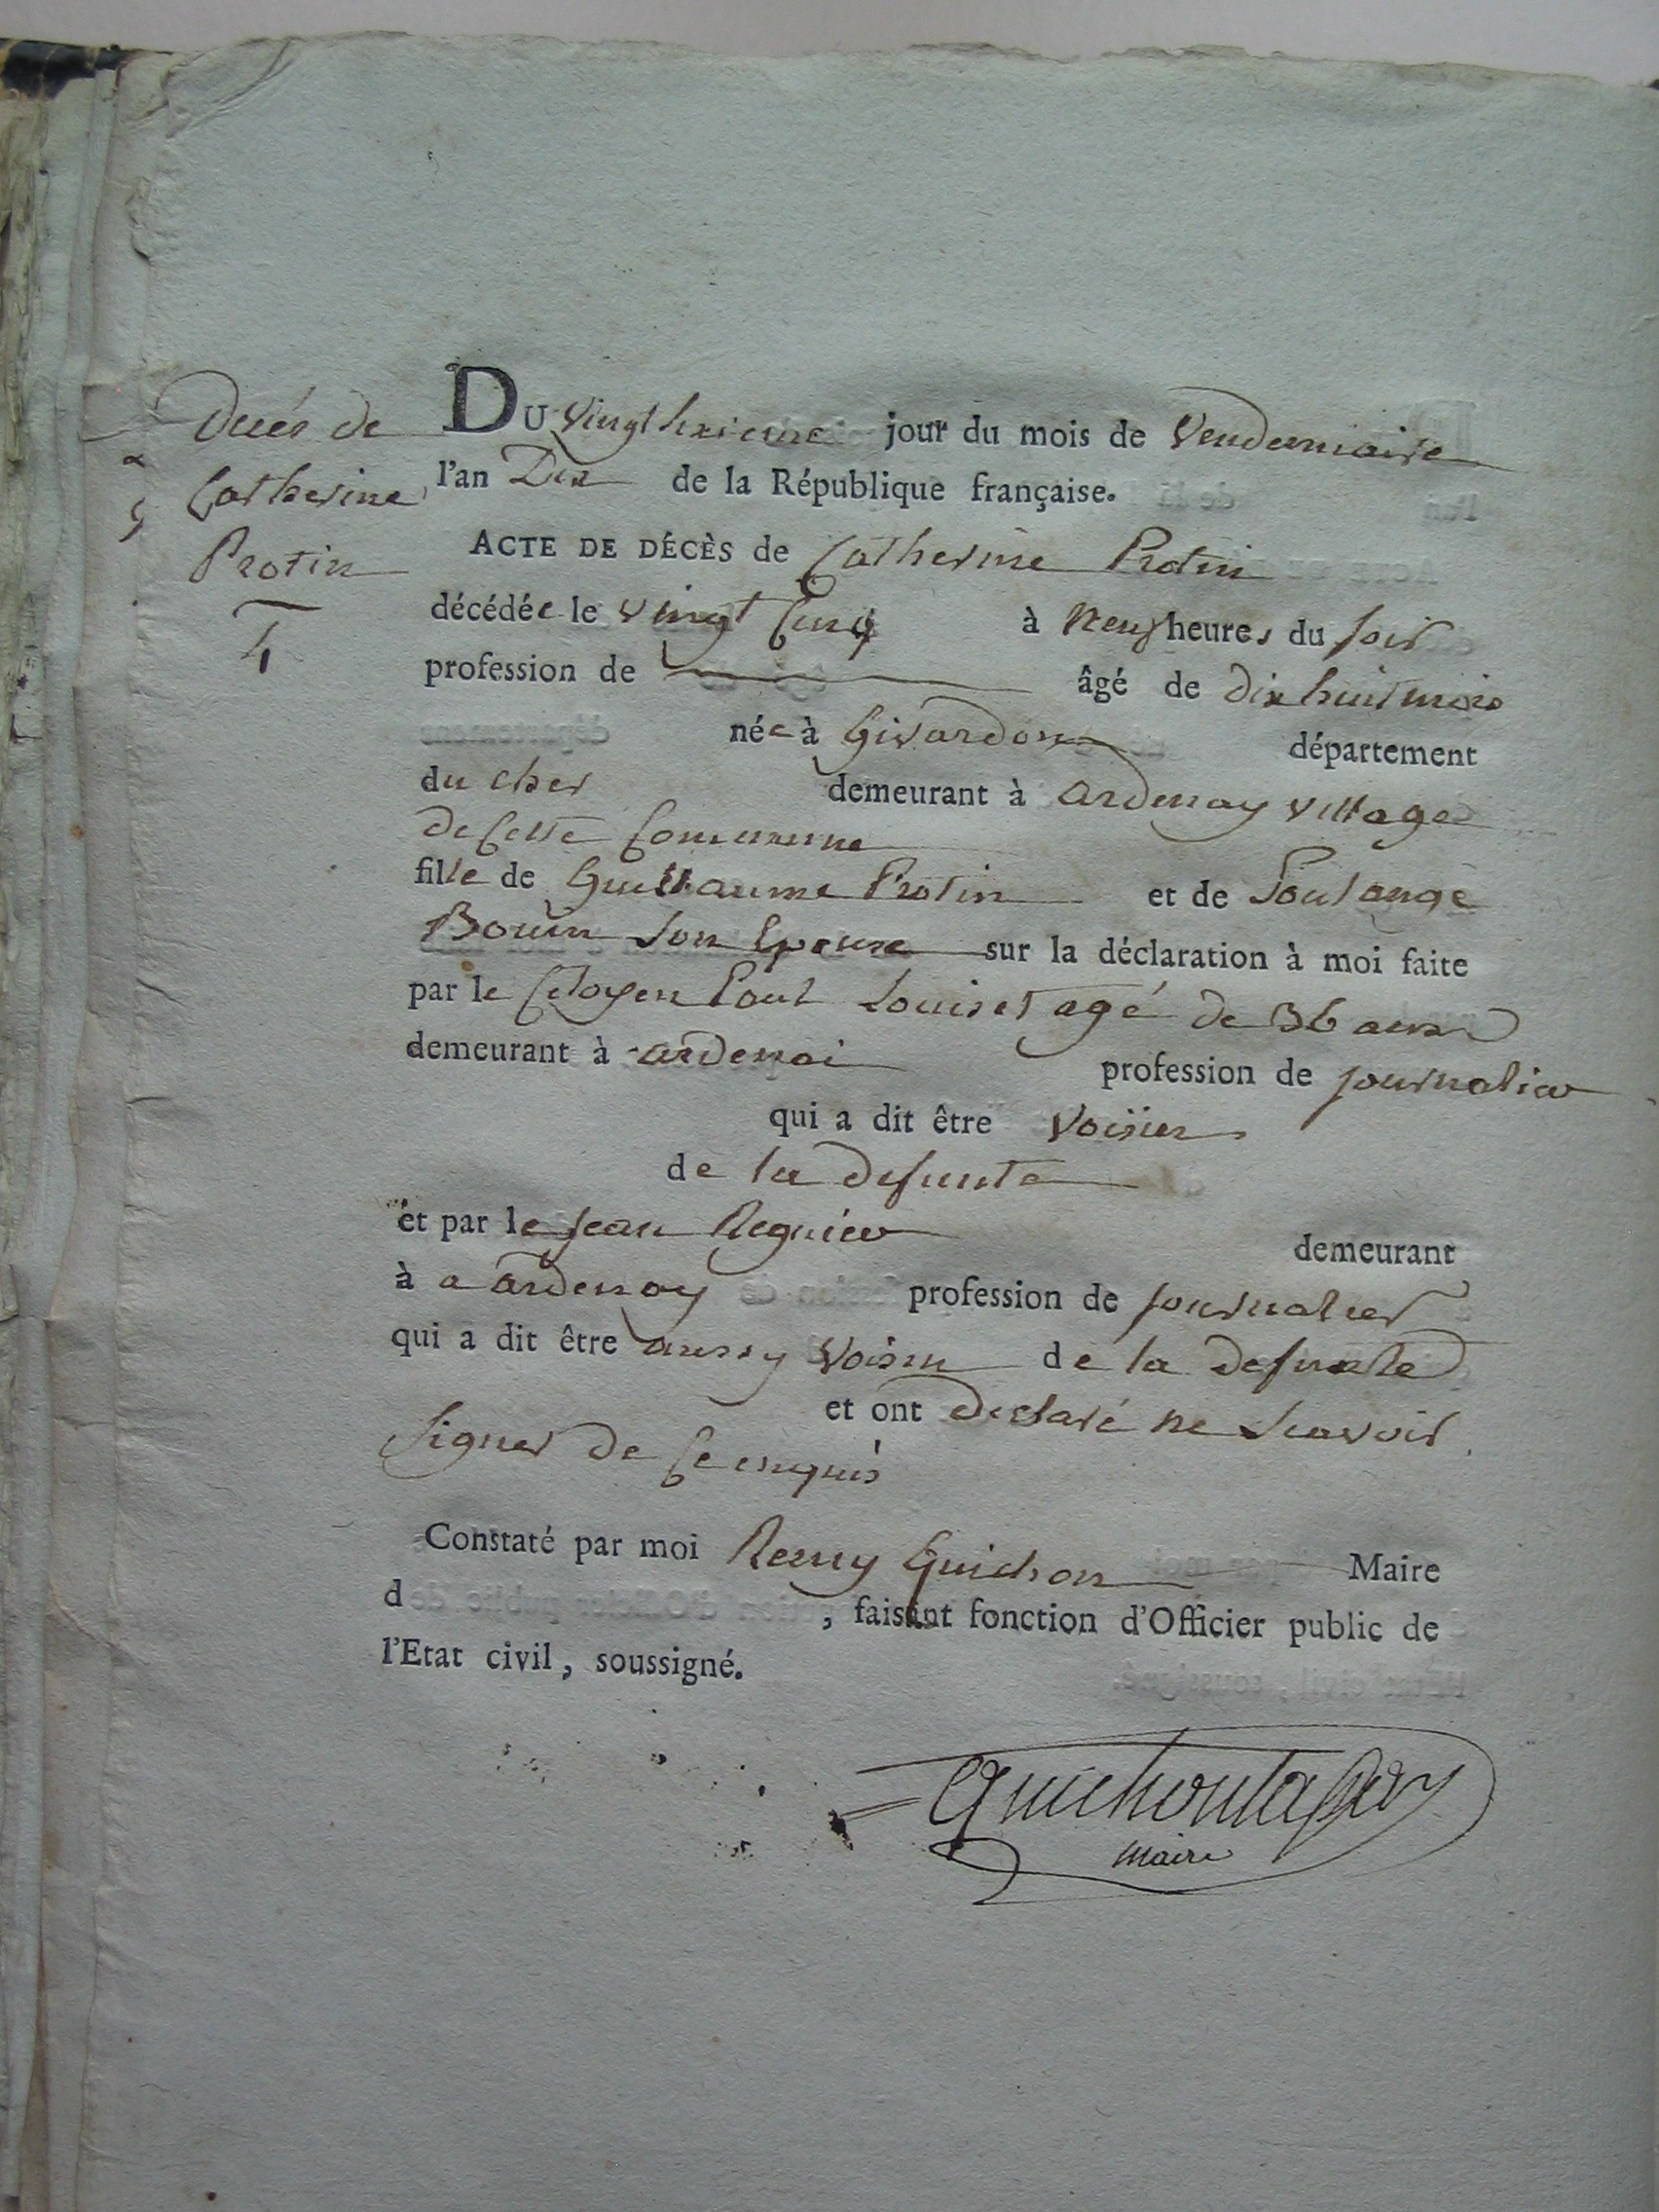 Decés de
Catherine
Protin
4
DU vingt sixieme jour du mois de Vendemiaire
l'an Dix de la République française.
ACTE DE DÉCÈS de Catherine Protin
décédée le vingt Cinq à neuf heures du soir
profession de âgé de dix huit mois
née à Givardon département
du cher demeurant à ardenay village
de Cette Commune
fille de Guillaume Protin et de Soulange
Bouin son Epouse sur la déclaration à moi faite
par le Citoyen Paul Louiset agé de 36 ans
demeurant à ardenai profession de journalier
qui a dit être voisin
de la defunte
et par le jean Regnier demeurant
à a ardenay profession de journalier
qui a dit être aussy voisin de la defunte
et ont declaré ne scavoir
signer de ce enquis
Constaté par moi Remy Guichon Maire
d , faisant fonction d'Officier public de
l'Etat civil, soussigné.
maire